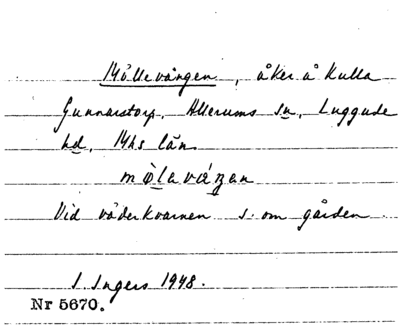 Möllevången, åker å Kulla
Gunnarstorp, Allerums sn, Luggude
hd, Mhs län
mø̀laváŋan
Vid väderkvarnen s. om gården
I. Ingers 1948.
Nr 5670.